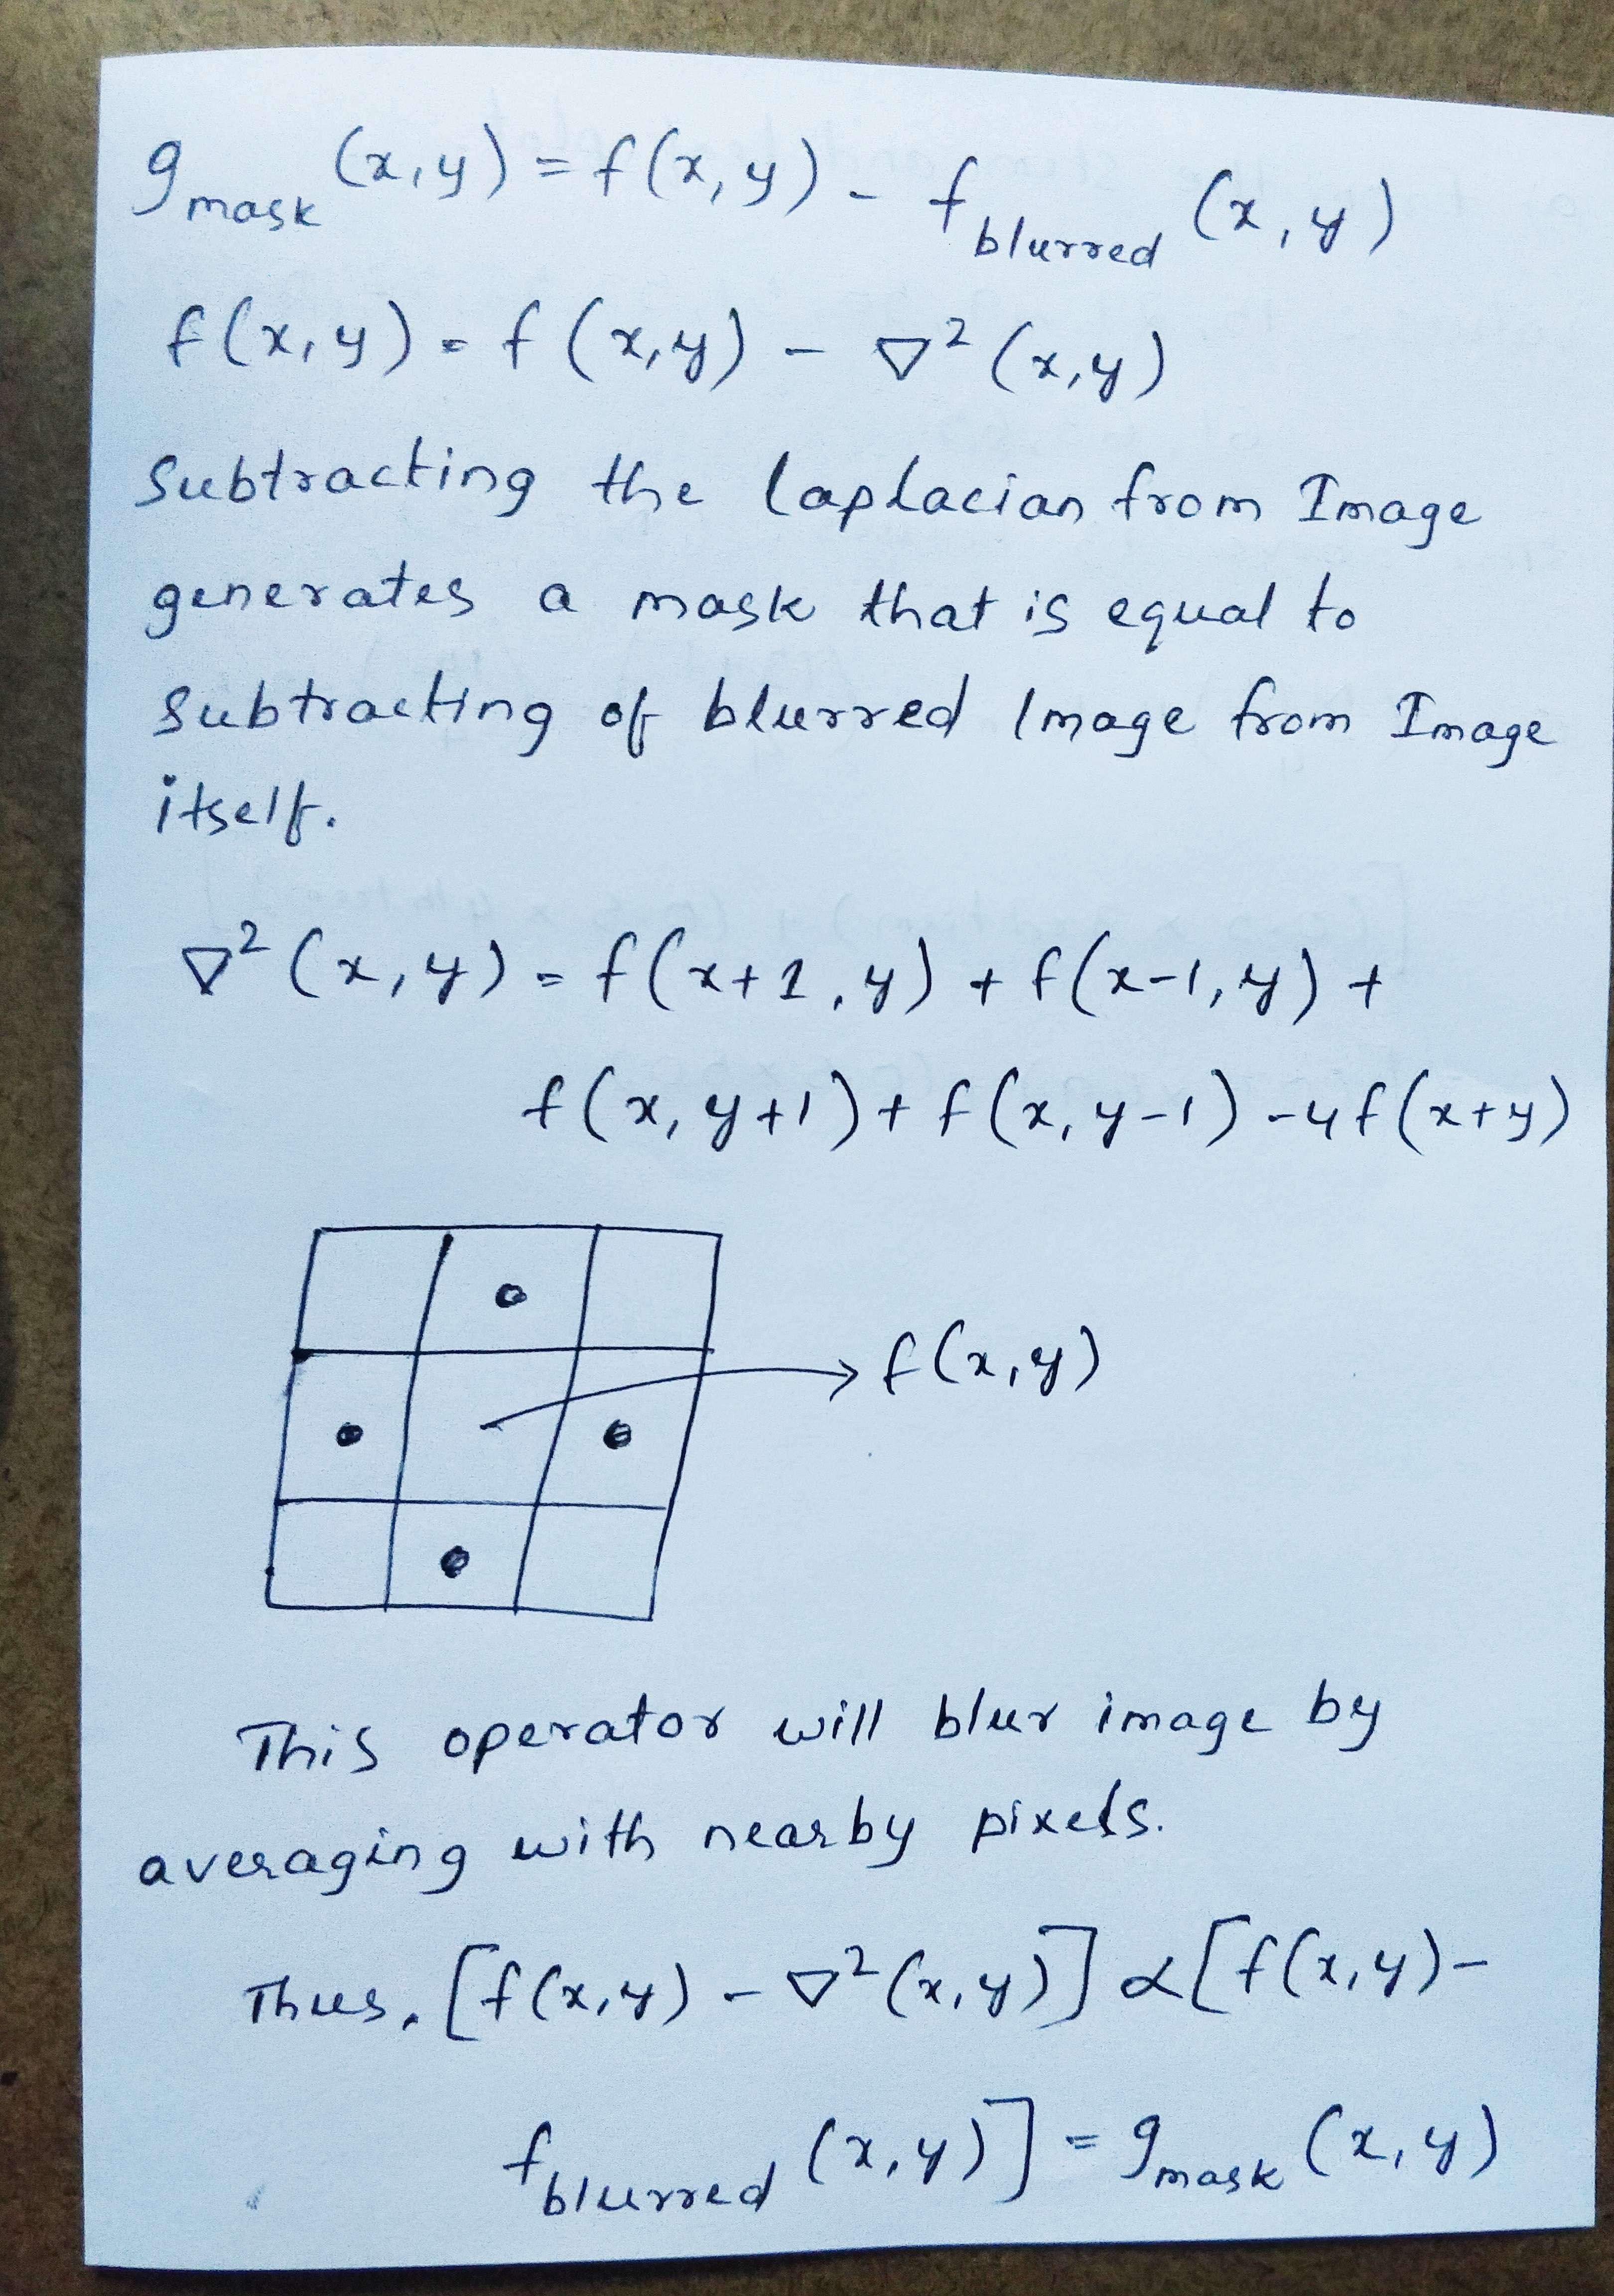 g mask (x,y) = f(x,y) - f blurred (x,y)
f(x,y) = f(x,y) - ∇²(x,y)
Subtracting the laplacian from Image
generates a mask that is equal to
subtracting of blurred Image from Image
itself.
∇²(x,y) = f(x+1,y) + f(x-1,y) +
f(x,y+1) + f(x,y-1) -4f(x+y)
f(x,y)
This operator will blur image by
averaging with nearby pixels.
Thus, [f(x,y) - ∇²(x,y)] ∝ [f(x,y) -
f blurred (x,y)] = g mask (x,y)